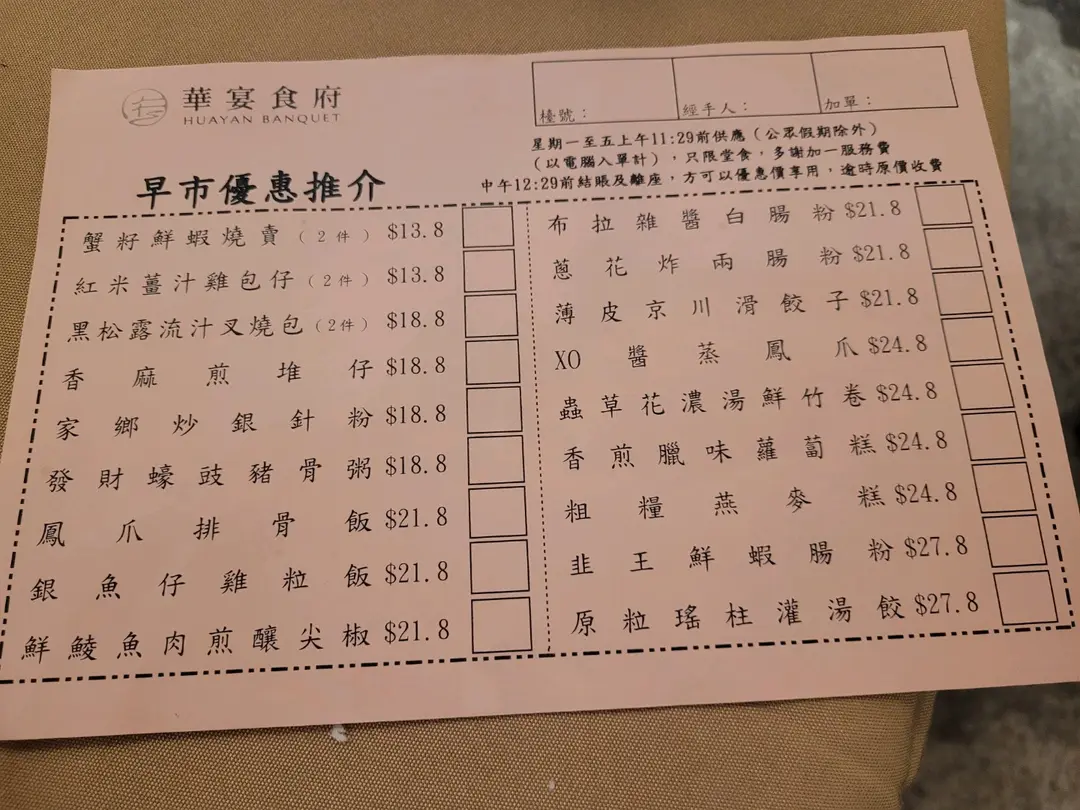 華宴食府
HUAYAN BANQUET
檯號：
經手人：
加單：
星期一至五上午11:29前供應（公眾假期除外）
（以電腦入單計），只限堂食，多謝加一服務費
中午12:29前結賬及離座，方可以優惠價享用，逾時原價收費
早市優惠推介
蟹籽鮮蝦燒賣（2件） $13.8
紅米薑汁雞包仔（2件） $13.8
黑松露流汁叉燒包（2件） $18.8
香麻煎堆仔 $18.8
家鄉炒銀針粉 $18.8
發財蠔豉豬骨粥 $18.8
鳳爪排骨飯 $21.8
銀魚仔雞粒飯 $21.8
鮮鯪魚肉煎釀尖椒 $21.8
布拉雜醬白腸粉 $21.8
蔥花炸兩腸粉 $21.8
薄皮京川滑餃子 $21.8
XO醬蒸鳳爪 $24.8
蟲草花濃湯鮮竹卷 $24.8
香煎臘味蘿蔔糕 $24.8
粗糧燕麥糕 $24.8
韭王鮮蝦腸粉 $27.8
原粒瑤柱灌湯餃 $27.8